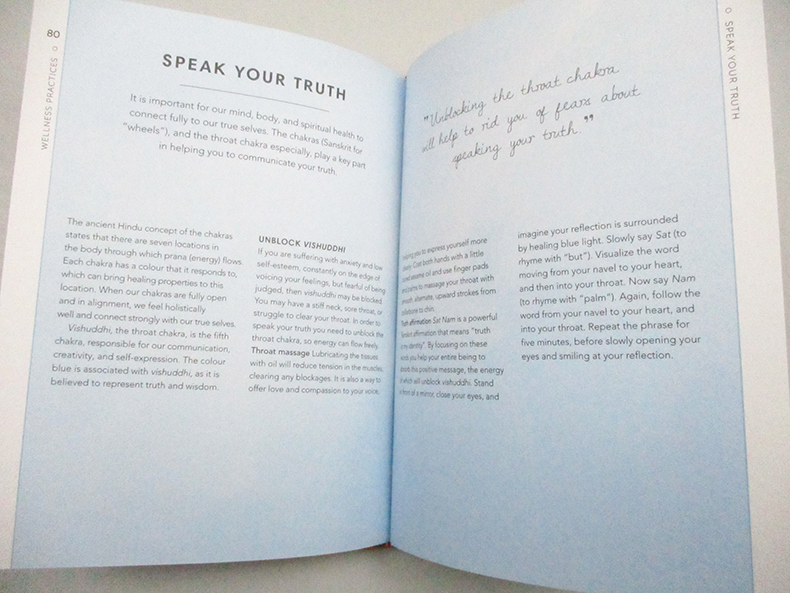 80
WELLNESS PRACTICES
SPEAK YOUR TRUTH
It is important for our mind, body, and spiritual health to
connect fully to our true selves. The chakras (Sanskrit for
"wheels"), and the throat chakra especially, play a key part
in helping you to communicate your truth.
The ancient Hindu concept of the chakras
states that there are seven locations in
the body through which prana (energy) flows.
Each chakra has a colour that it responds to,
which can bring healing properties to this
location. When our chakras are fully open
and in alignment, we feel holistically
well and connect strongly with our true selves.
Vishuddhi, the throat chakra, is the fifth
chakra, responsible for our communication,
creativity, and self-expression. The colour
blue is associated with vishuddhi, as it is
believed to represent truth and wisdom.
UNBLOCK VISHUDDHI
If you are suffering with anxiety and low
self-esteem, constantly on the edge of
voicing your feelings, but fearful of being
judged, then vishuddhi may be blocked.
You may have a stiff neck, sore throat, or
struggle to clear your throat. In order to
speak your truth you need to unblock the
throat chakra, so energy can flow freely.
Throat massage Lubricating the tissues
with oil will reduce tension in the muscles,
clearing any blockages. It is also a way to
offer love and compassion to your voice,
SPEAK YOUR TRUTH
"Unblocking the throat chakra
will help to rid you of fears about
speaking your truth."
helping you to express yourself more
clearly. Coat both hands with a little
sesame oil and use finger pads
and palms to massage your throat with
smooth, alternate, upward strokes from
collarbone to chin.
Truth affirmation Sat Nam is a powerful
affirmation that means "truth
is my identity". By focusing on these
words you help your entire being to
absorb this positive message, the energy
of which will unblock vishuddhi. Stand
in front of a mirror, close your eyes, and
imagine your reflection is surrounded
by healing blue light. Slowly say Sat (to
rhyme with "but"). Visualize the word
moving from your navel to your heart,
and then into your throat. Now say Nam
(to rhyme with "palm"). Again, follow the
word from your navel to your heart, and
into your throat. Repeat the phrase for
five minutes, before slowly opening your
eyes and smiling at your reflection.